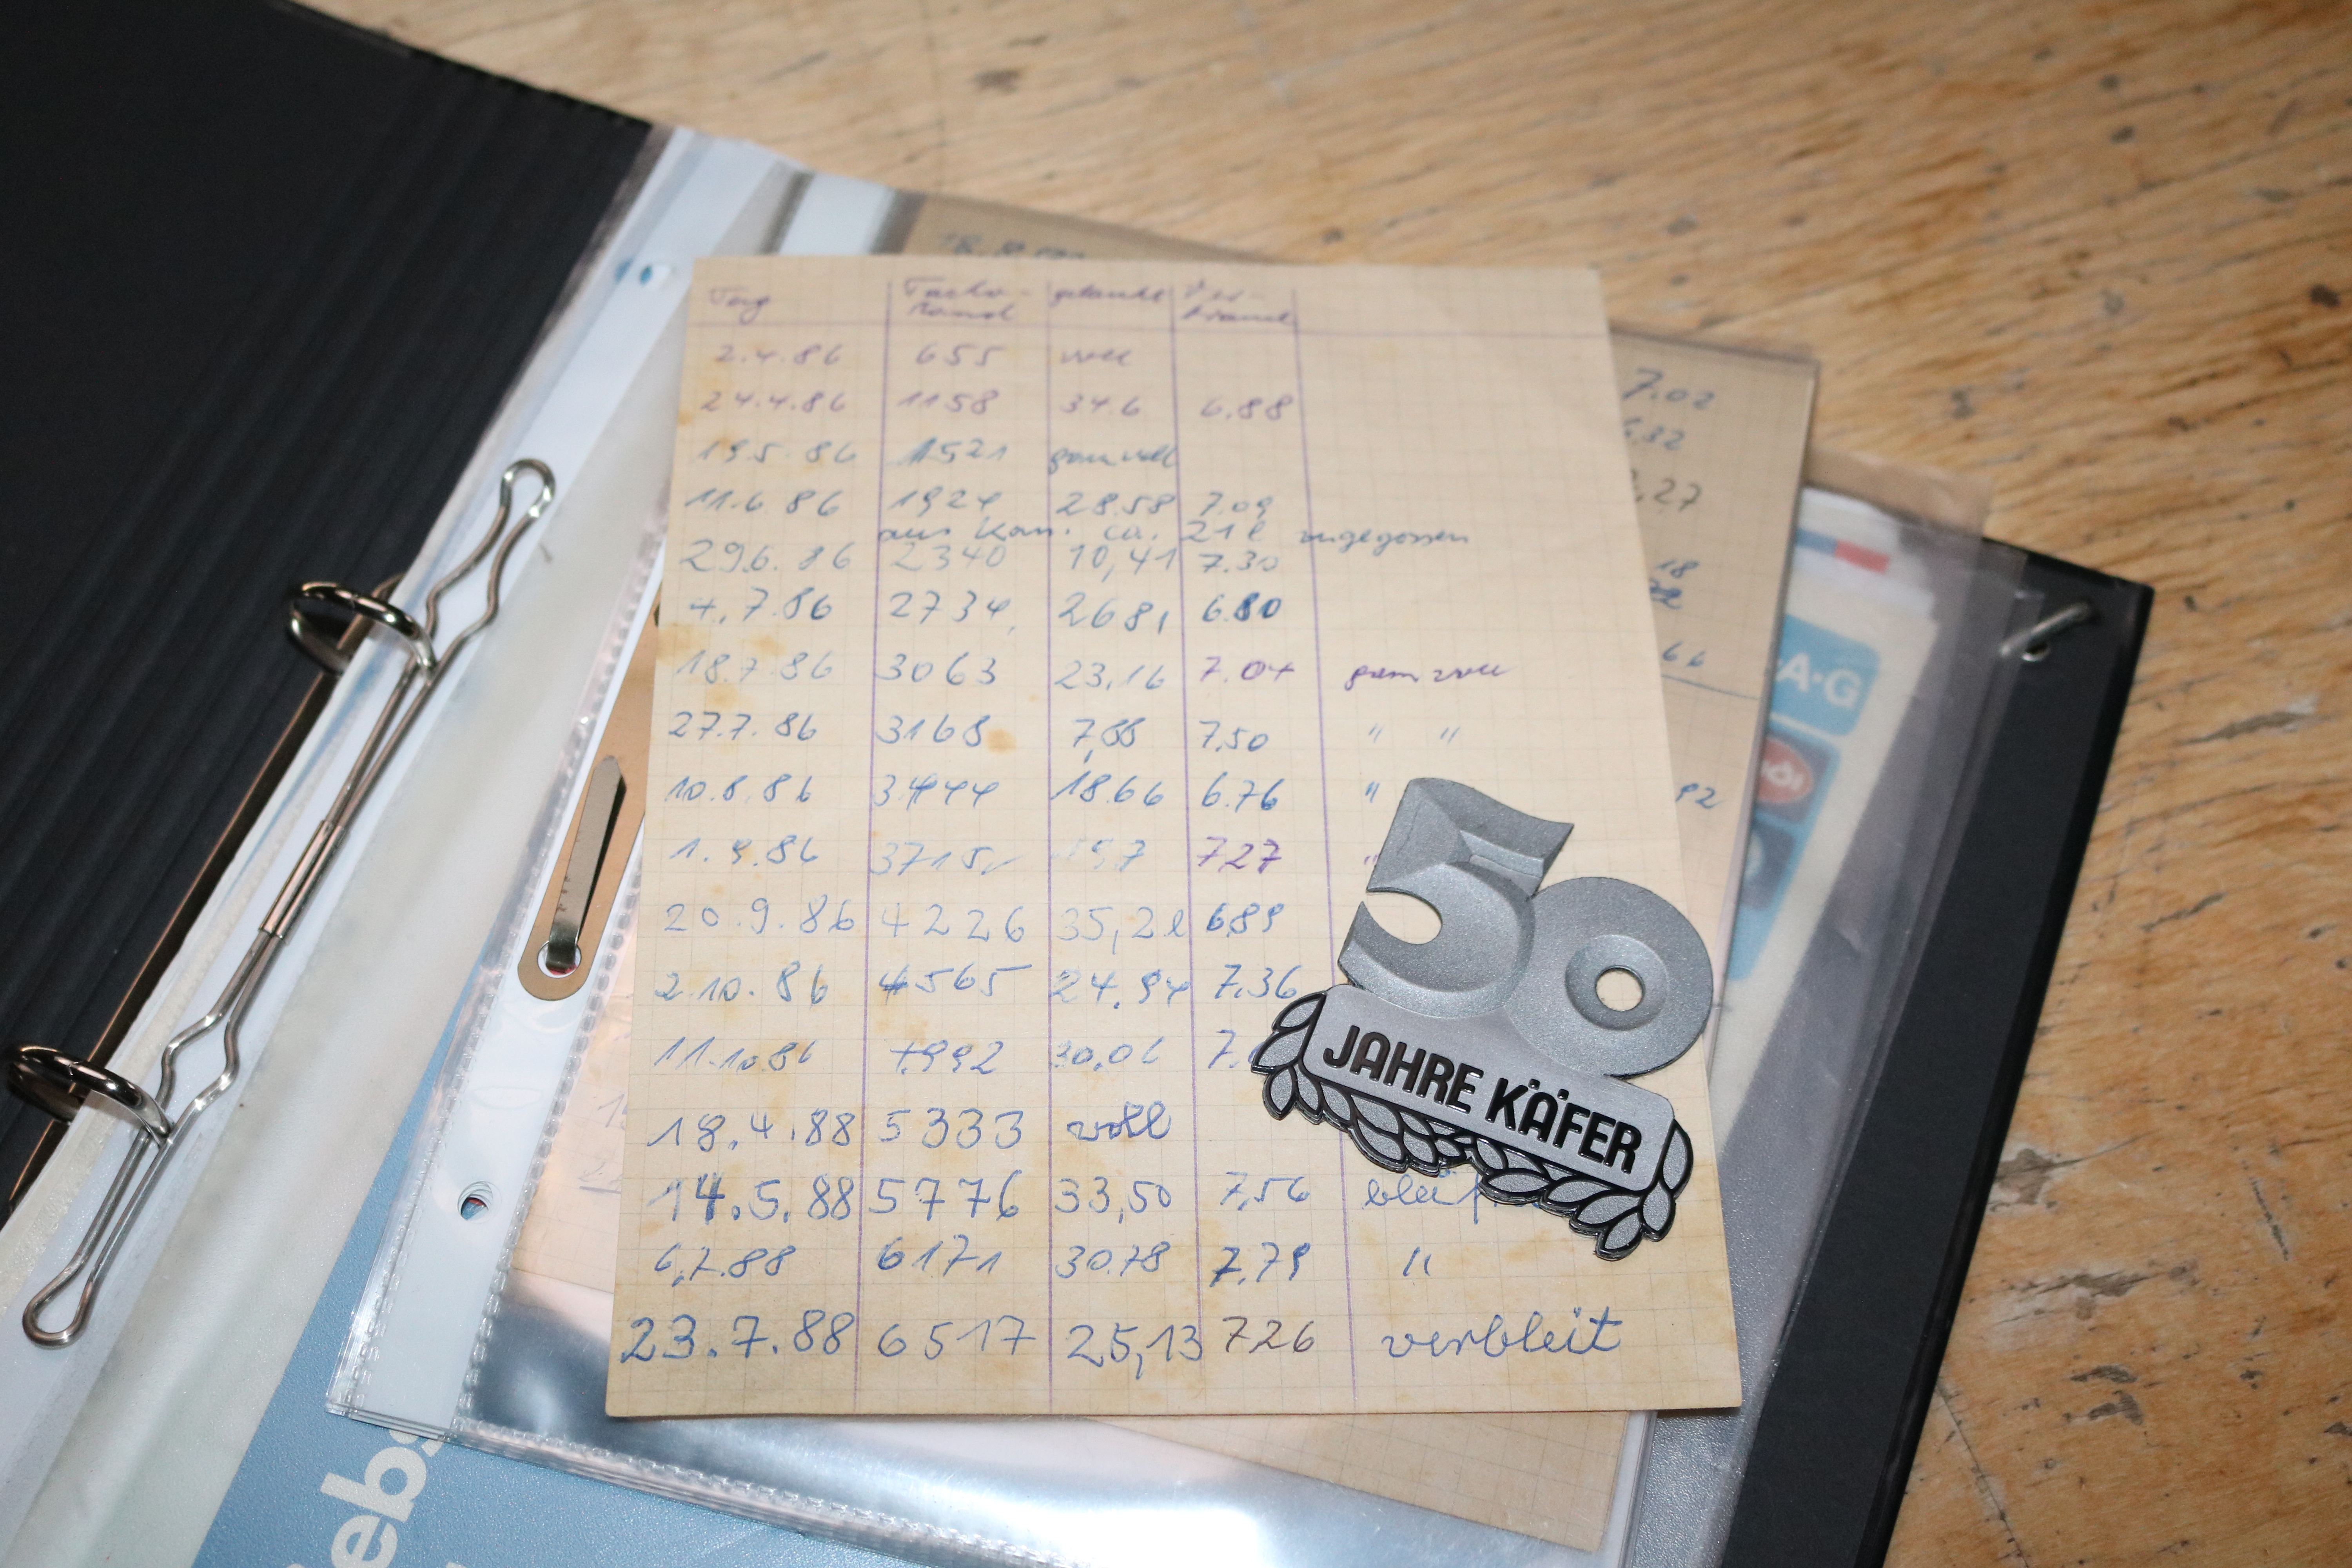 Tag Tacho- getankt Ver-
stand brauch
2.4.86 655 voll
24.4.86 1158 34.6 6.88
19.5.86 1521 ganz voll
11.6.86 1924 28.58 7.09
aus Kan. ca. 21 l zugegossen
29.6.86 2340 10,41 7.30
4.7.86 2734 26 81 6.80
18.7.86 3063 23,16 7.04 ganz voll
27.7.86 3168 7,88 7.50 " "
10.8.86 3444 18.66 6.76 "
1.9.86 3715 7.27 "
20.9.86 4226 35,2 l 6.89
2.10.86 4565 24.94 7.36
11.10.86 4992 30,06 7.
18.4.88 5333 voll
14.5.88 5776 33,50 7,56
6.7.88 6171 30.78 7.79 "
23.7.88 6517 25,13 7 26 verbleit
50
JAHRE KÄFER
7.02
6.32
.27
18
66
92
A·G
ebs